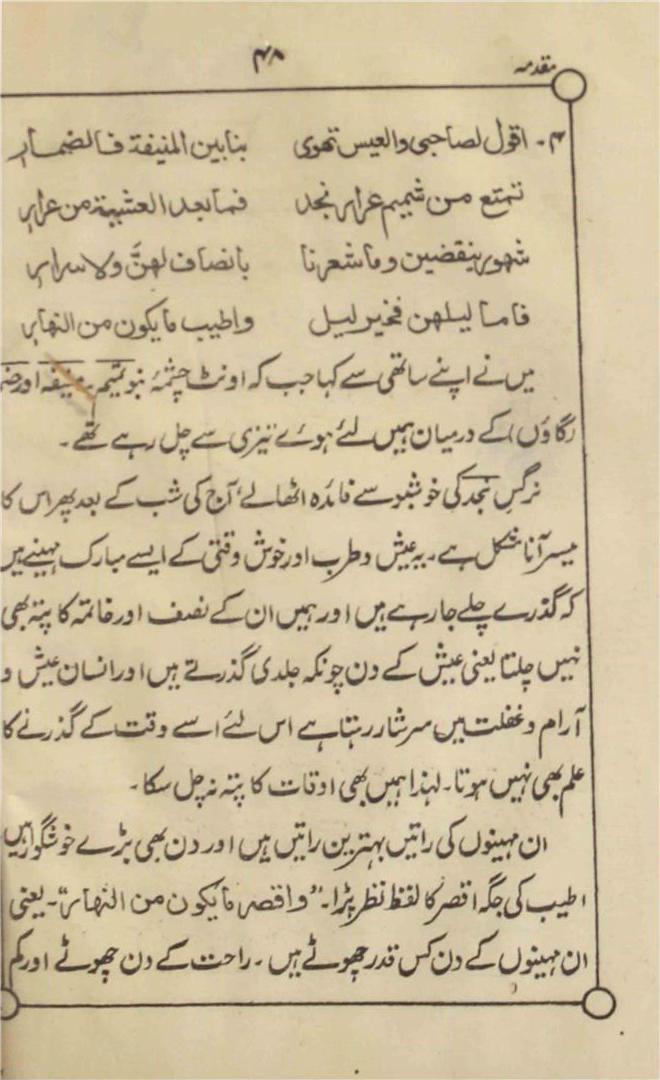 مقدمہ
۴۸
۴۔ اقول لصاحبی والعیس تھوی بنا بین المنیفۃ فالضمار
تمتع من شمیم عرار نجد فما بعد العشیۃ من عرار
شھور ینقضین وما شعرنا بانصاف لھنّ ولا سرار
فاما لیلھن فخیر لیل واطیب ما یکون من النھار
میں نے اپنے ساتھی سے کہا جب کہ اونٹ چشمۂ بنو تمیم منیفہ اور
(گاؤں) کے درمیان ہمیں لئے ہوئے تیزی سے چل رہے تھے۔
نرگس نجد کی خوشبو سے فائدہ اٹھالے، آج کی شب کے بعد پھر اس کا
میسر آنا مشکل ہے۔ یہ عیش و طرب اور خوش وقتی کے ایسے مبارک مہینے ہیں
کہ گذرے چلے جا رہے ہیں اور ہمیں ان کے نصف اور خاتمہ کا پتہ بھی
نہیں چلتا یعنی عیش کے دن چونکہ جلدی گذرتے ہیں اور انسان عیش و
آرام و غفلت میں سرشار رہتا ہے اس لئے اسے وقت کے گذرنے کا
علم بھی نہیں ہوتا۔ لہذا ہمیں بھی اوقات کا پتہ نہ چل سکا۔
ان مہینوں کی راتیں بہترین راتیں ہیں اور دن بھی بڑے خوشگوار ہیں
اطیب کی جگہ اقصر کا لفظ نظر پڑا۔ ”واقصر ما یکون من النھار“۔ یعنی
ان مہینوں کے دن کس قدر چھوٹے ہیں۔ راحت کے دن چھوٹے اور کم